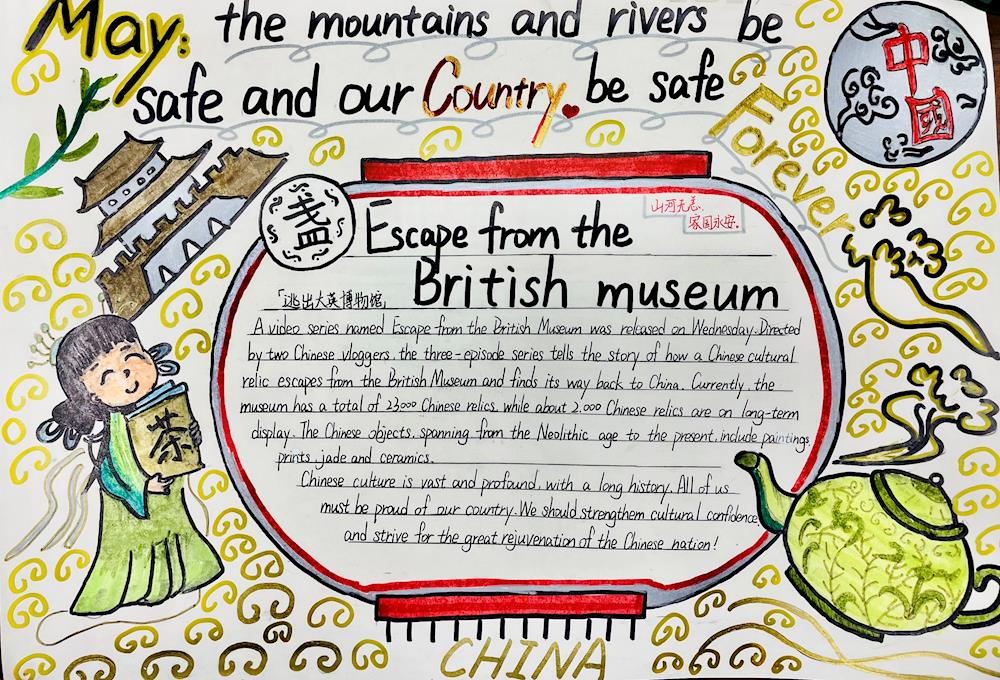 May: the mountains and rivers be
safe and our Country be safe
Forever
中
國
盏
Escape from the
British museum
山河无恙,
家国永安.
「逃出大英博物馆」
A video series named Escape from the British Museum was released on Wednesday. Directed
by two Chinese vloggers, the three-episode series tells the story of how a Chinese cultural
relic escapes from the British Museum and finds its way back to China. Currently, the
museum has a total of 23000 Chinese relics, while about 2,000 Chinese relics are on long-term
display. The Chinese objects, spanning from the Neolithic age to the present, include paintings,
prints, jade and ceramics.
Chinese culture is vast and profound, with a long history. All of us
must be proud of our country. We should strengthem cultural confidence,
and strive for the great rejuvenation of the Chinese nation!
茶
CHINA